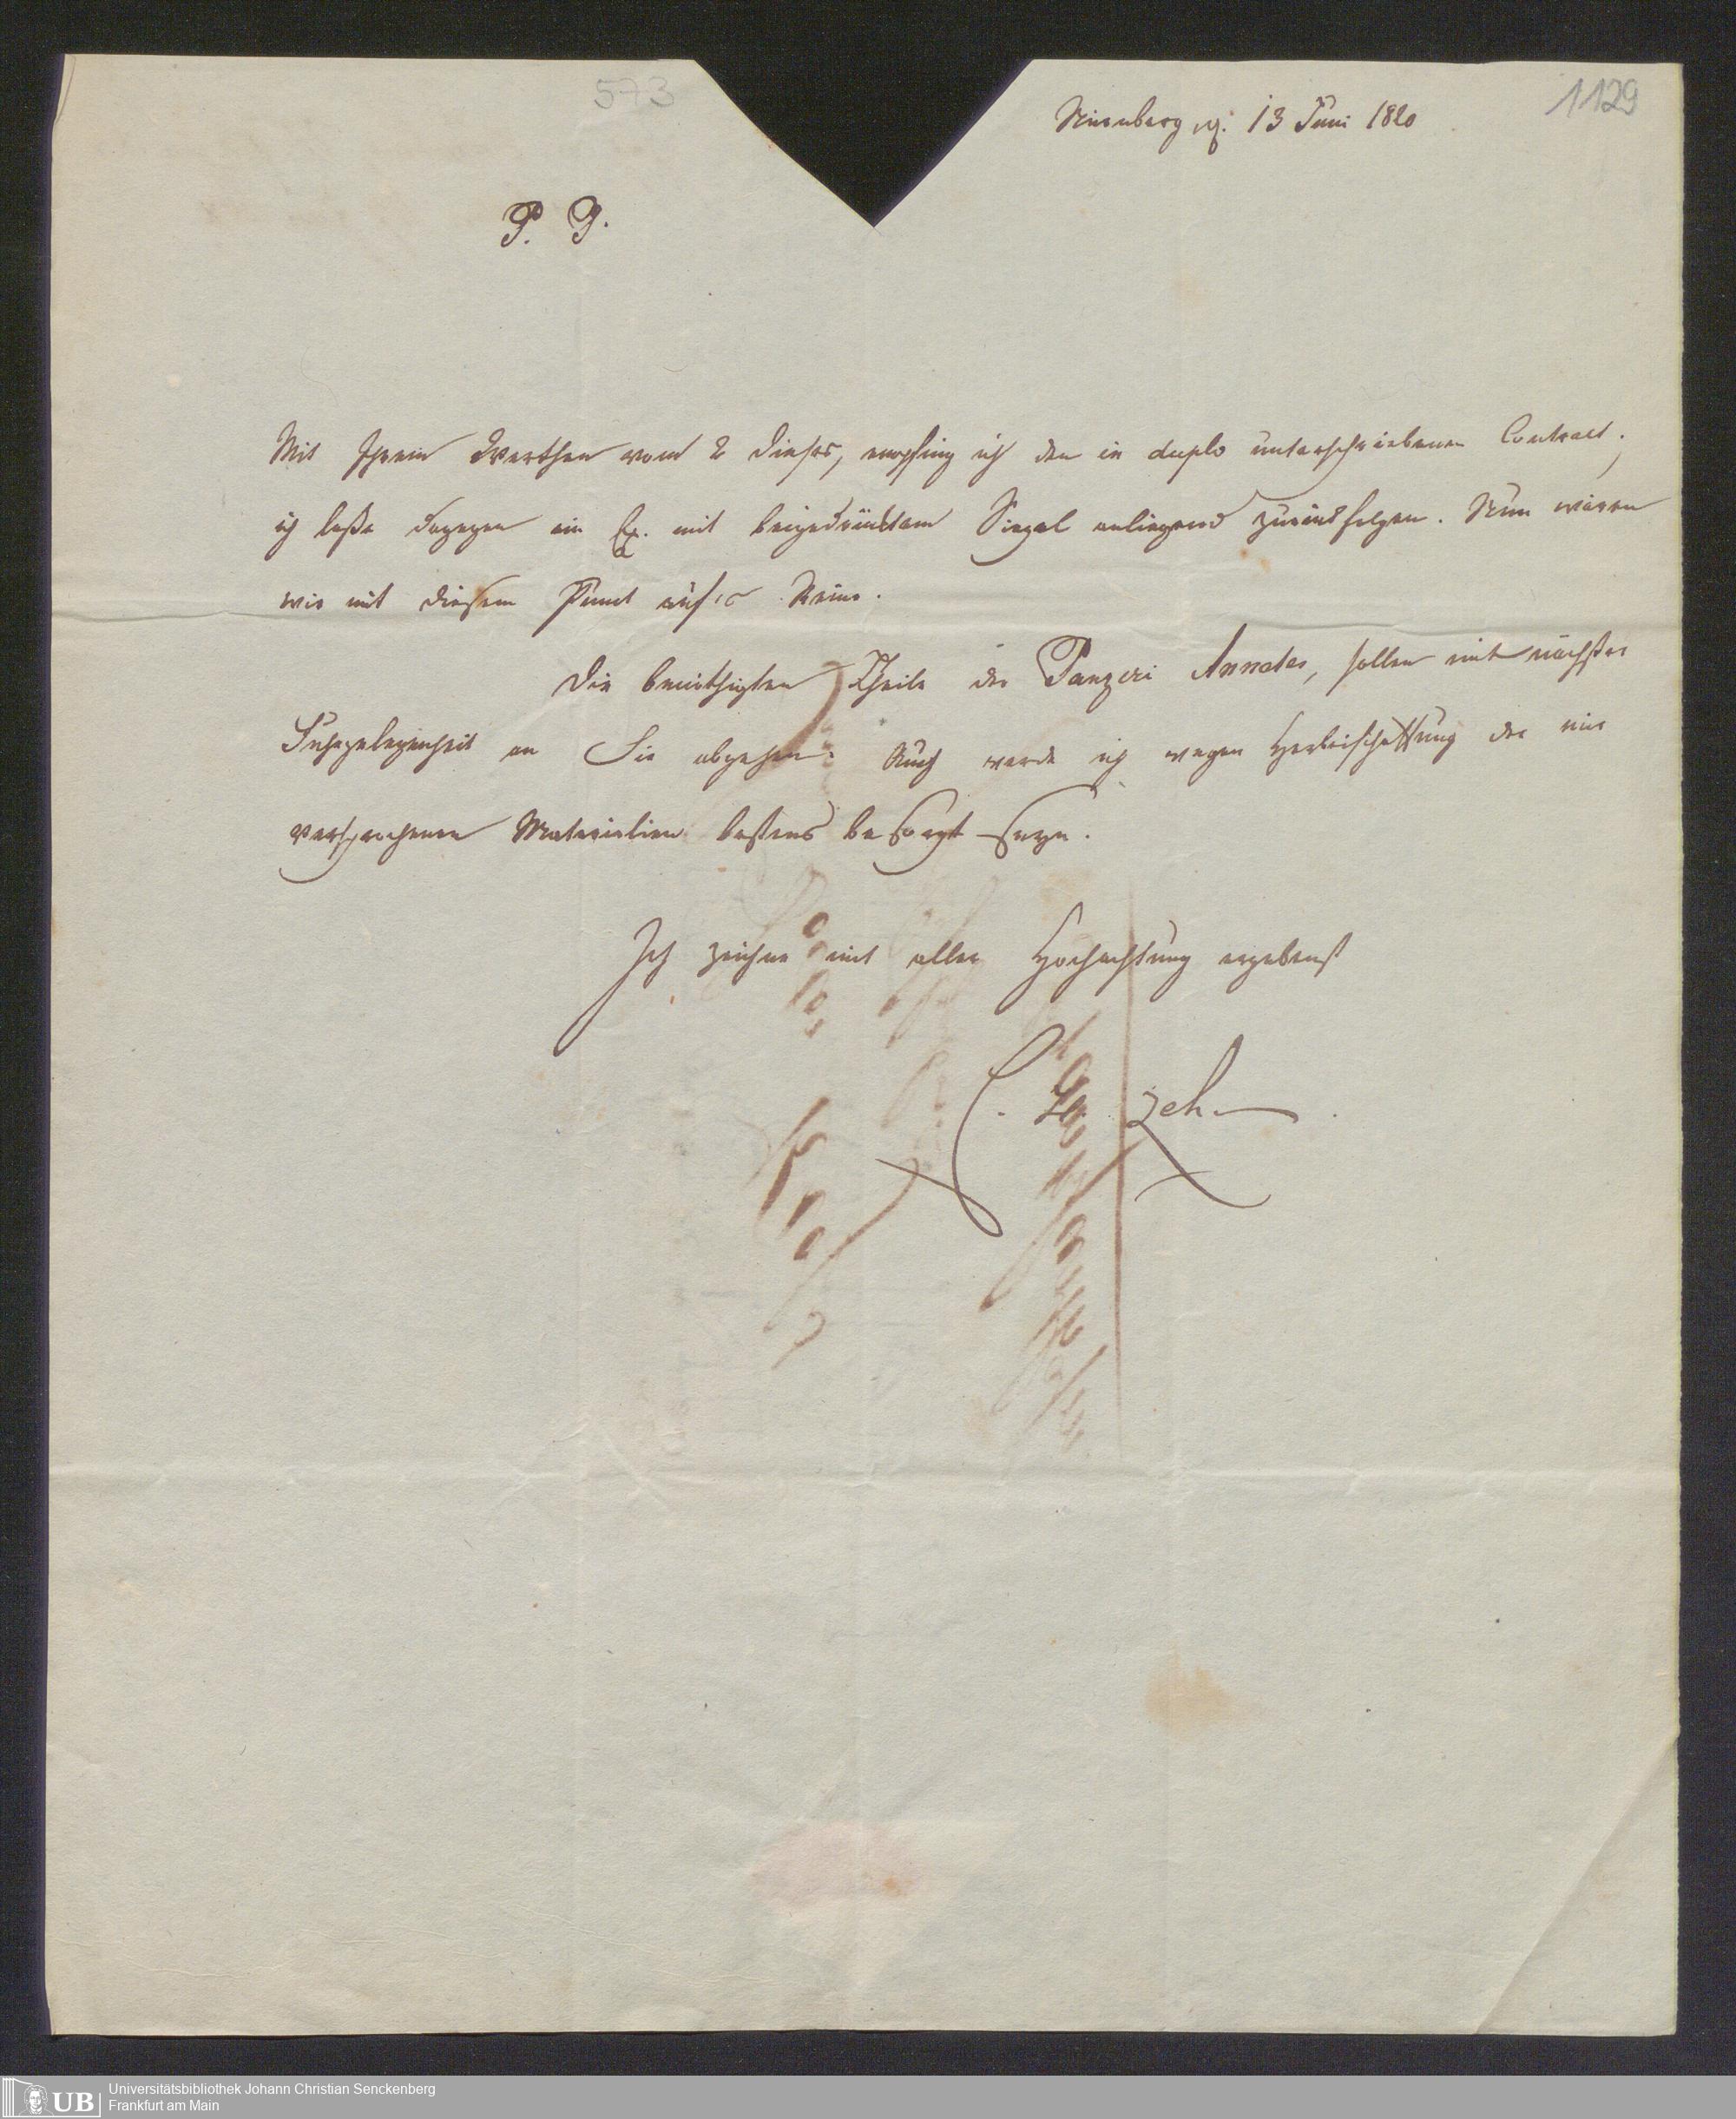 573
1129
Nürnberg d. 13 Juni 1820
P. P.
Mit Ihrem Werthen vom 2 dieses, empfing ich den in duplo unterschriebenen Contract;
ich laße dagegen ein Ex. mit beigedrücktem Siegel anliegend zurückfolgen. Nun wären
wir mit diesem Punct auf's Reine.
Die benöthigten Theile der Panzeri Annales, sollen mit nächster
Fuhrgelegenheit an Sie abgehen. Auch werde ich wegen Herbeischaffung der mir
versprochenen Materialien bestens besorgt seyn.
Ich zeichne mit aller Hochachtung ergebenst
C. H. Zeh
UB
Universitätsbibliothek Johann Christian Senckenberg
Frankfurt am Main